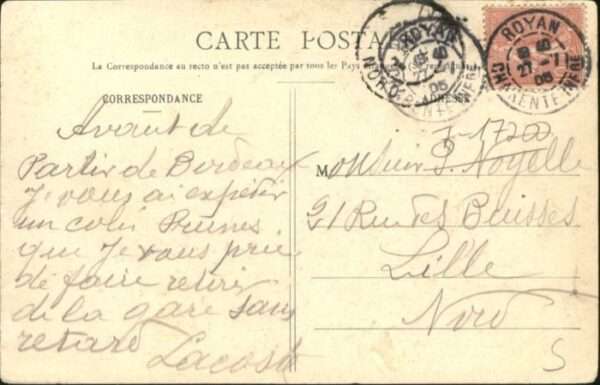 CARTE POSTALE
La Correspondance au recto n'est pas acceptée par tous les Pays
CORRESPONDANCE
ADRESSE
ROYAN
27 -1
06
CHARENTE INFRE
ROYAN
06
J-17200
Avant de
Partir de Bordeaux
Je vous ai expédier
un colis Prunes
que Je vous prie
de faire retirer
de la gare sans
retard
Lacoste
Monsieur P. Noyelle
21 Rue des Buisses
Lille
Nord
S